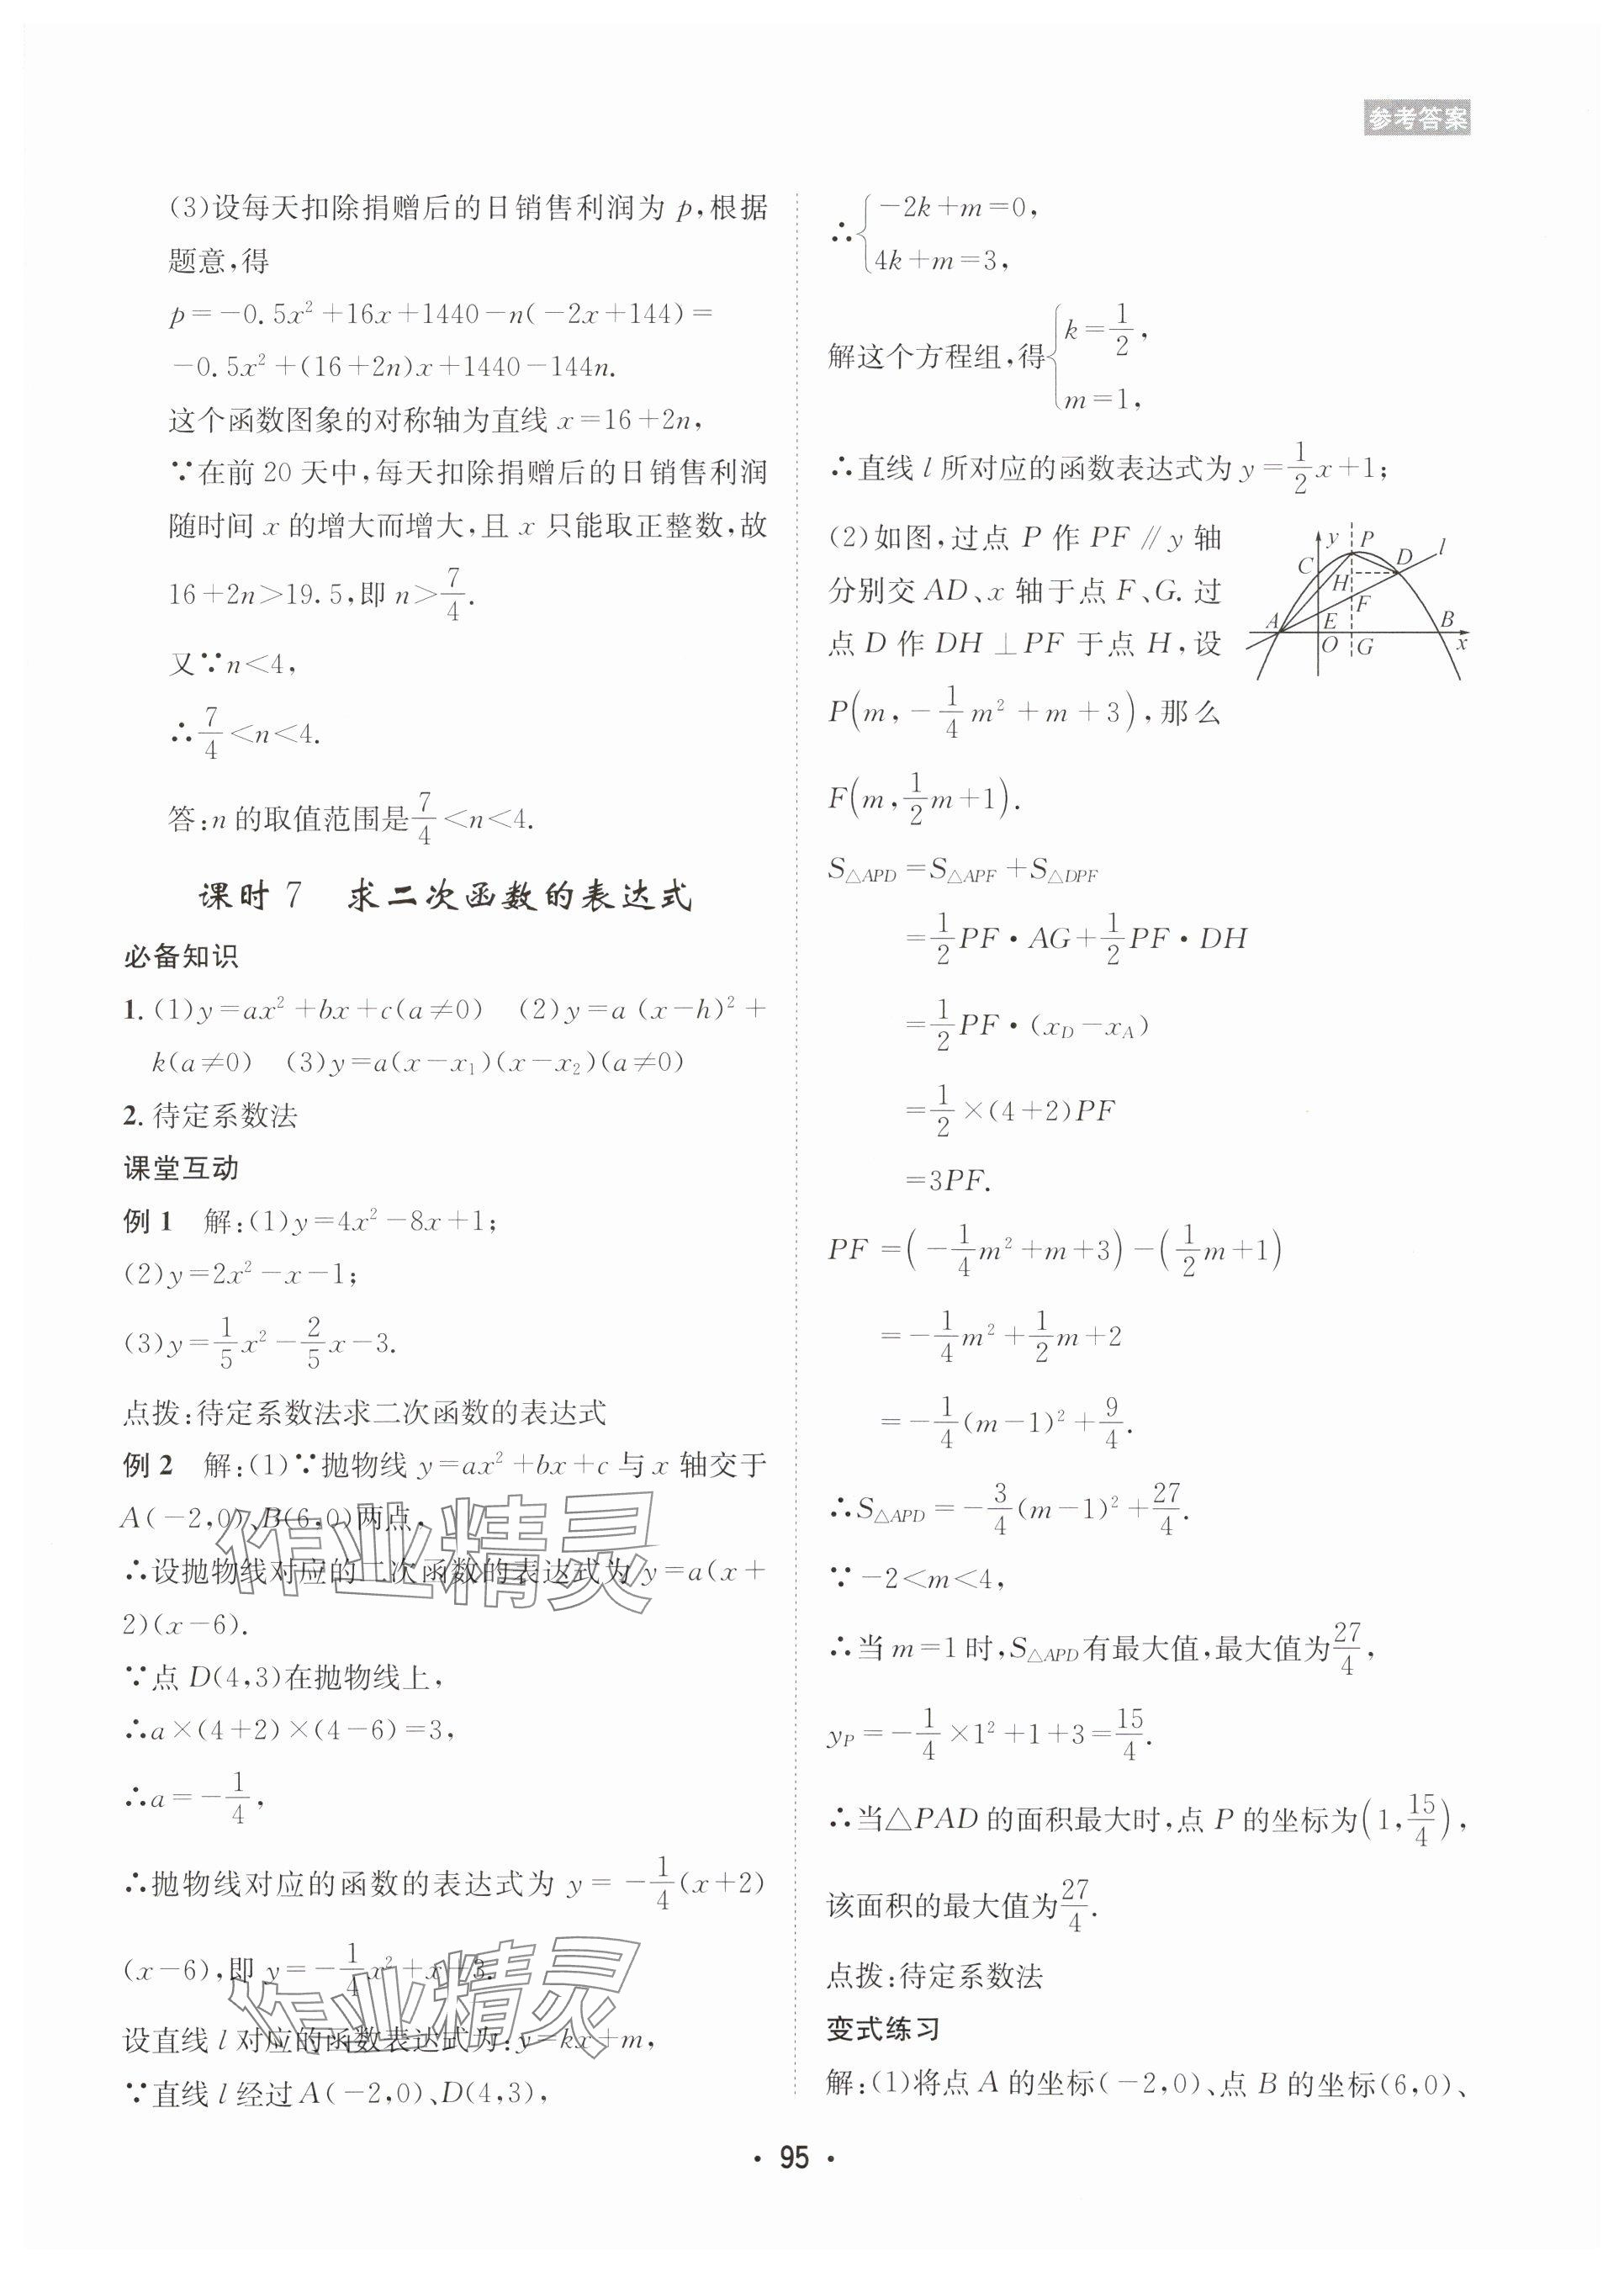 参考答案
(3)设每天扣除捐赠后的日销售利润为 p,根据
题意,得
p=-0.5x²+16x+1440-n(-2x+144)=
-0.5x²+(16+2n)x+1440-144n.
这个函数图象的对称轴为直线 x=16+2n,
∵在前 20 天中,每天扣除捐赠后的日销售利润
随时间 x 的增大而增大,且 x 只能取正整数,故
16+2n>19.5,即 n>7/4.
又∵n<4,
∴7/4<n<4.
答:n 的取值范围是7/4<n<4.
课时 7 求二次函数的表达式
必备知识
1. (1)y=ax²+bx+c(a≠0) (2)y=a (x-h)²+
k(a≠0) (3)y=a(x-x₁)(x-x₂)(a≠0)
2. 待定系数法
课堂互动
例 1 解:(1)y=4x²-8x+1;
(2)y=2x²-x-1;
(3)y=1/5x²-2/5x-3.
点拨:待定系数法求二次函数的表达式
例 2 解:(1)∵抛物线 y=ax²+bx+c 与 x 轴交于
A(-2,0)、B(6,0)两点,
∴设抛物线对应的二次函数的表达式为 y=a(x+
2)(x-6).
∵点 D(4,3)在抛物线上,
∴a×(4+2)×(4-6)=3,
∴a=-1/4,
∴抛物线对应的函数的表达式为 y=-1/4(x+2)
(x-6),即 y=-1/4x²+x+3.
设直线 l 对应的函数表达式为:y=kx+m,
∵直线 l 经过 A(-2,0)、D(4,3),
∴{-2k+m=0,
4k+m=3,
解这个方程组,得{k=1/2,
m=1,
∴直线 l 所对应的函数表达式为 y=1/2x+1;
(2)如图,过点 P 作 PF∥y 轴
分别交 AD、x 轴于点 F、G. 过
点 D 作 DH⊥PF 于点 H,设
P(m,-1/4m²+m+3),那么
F(m,1/2m+1).
y P D l
C H F
A E B
O G x
S△APD=S△APF+S△DPF
=1/2PF·AG+1/2PF·DH
=1/2PF·(x_D-x_A)
=1/2×(4+2)PF
=3PF.
PF=(-1/4m²+m+3)-(1/2m+1)
=-1/4m²+1/2m+2
=-1/4(m-1)²+9/4.
∴S△APD=-3/4(m-1)²+27/4.
∵-2<m<4,
∴当 m=1 时,S△APD有最大值,最大值为27/4,
y_P=-1/4×1²+1+3=15/4.
∴当△PAD 的面积最大时,点 P 的坐标为(1,15/4),
该面积的最大值为27/4.
点拨:待定系数法
变式练习
解:(1)将点 A 的坐标(-2,0)、点 B 的坐标(6,0)、
· 95 ·
作业精灵
作业精灵